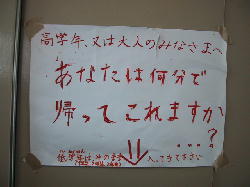 高学年、又は大人のみなさまへ
あなたは何分で
帰ってこれますか
....?
低学年は、そのまま 入ってきて下さい